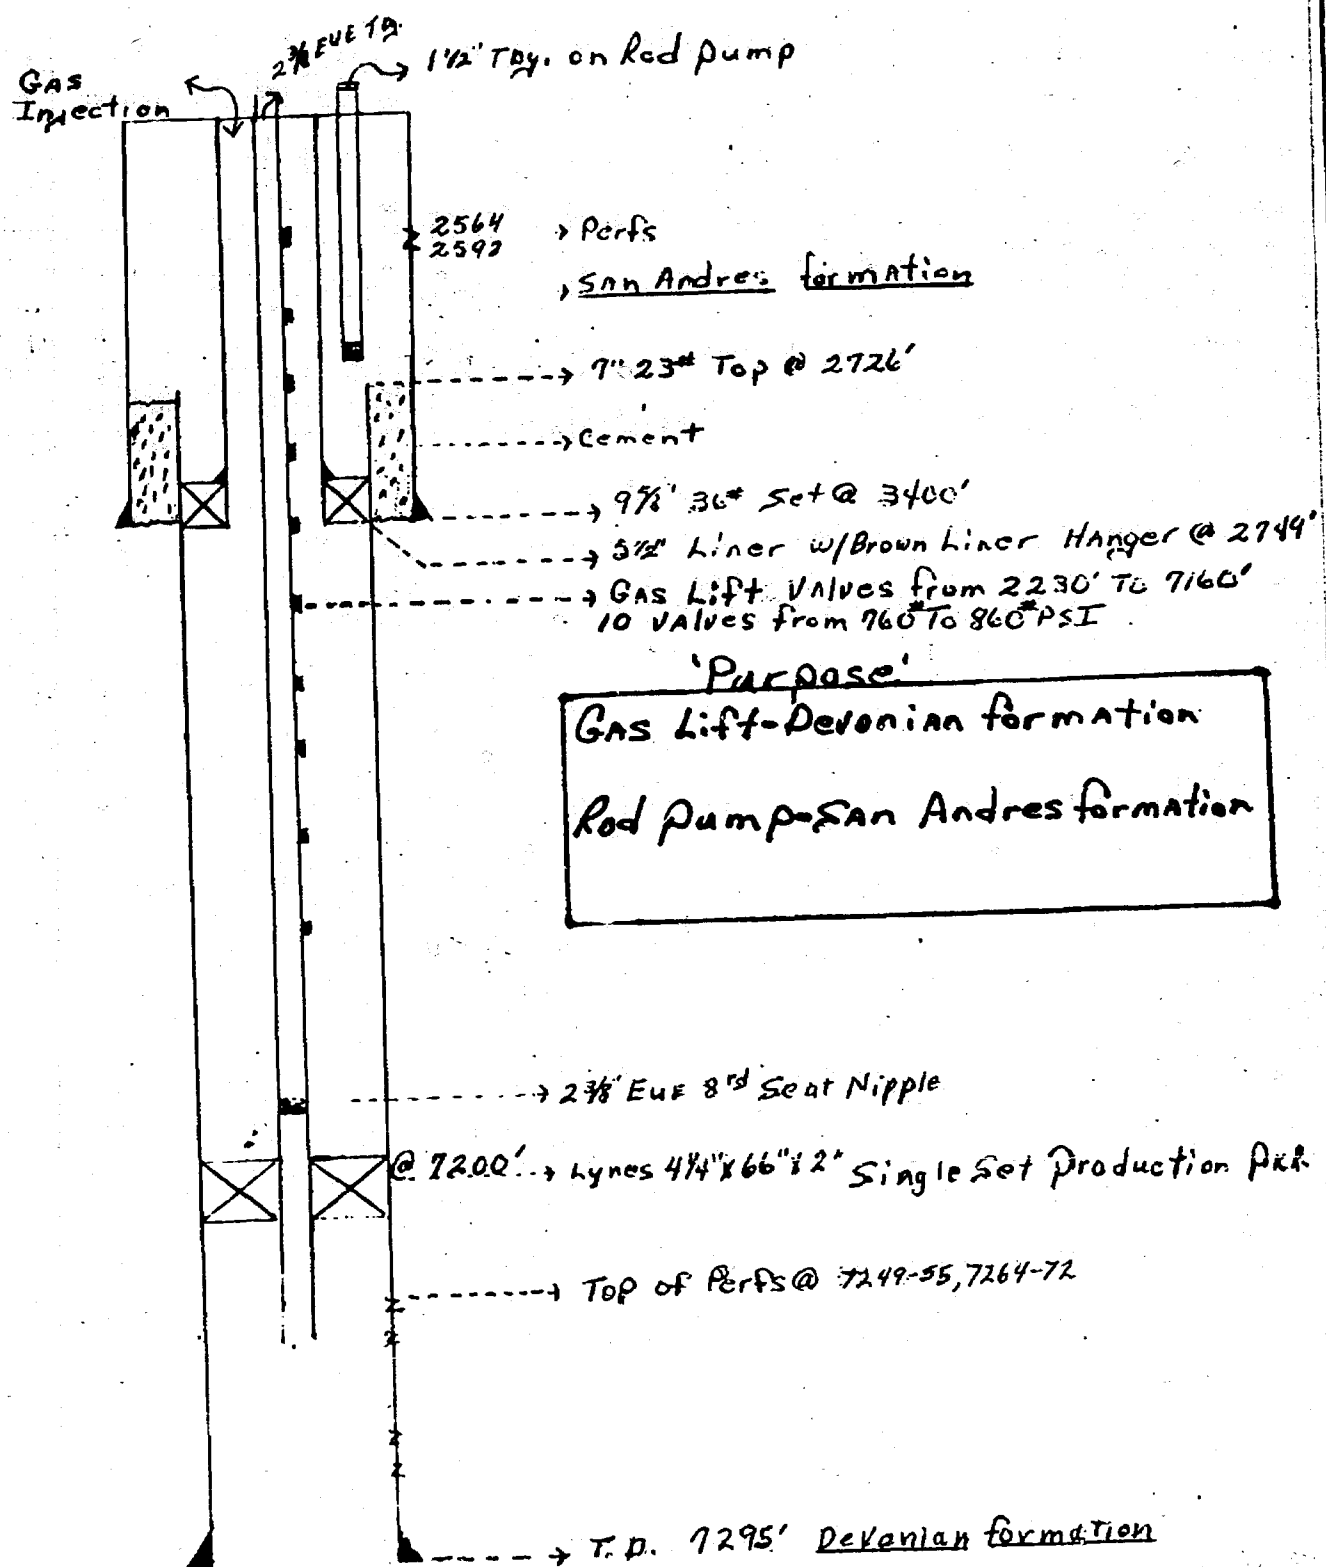 2 3/8 EUE TB.
1 1/2" Tby. on Rod Pump
GAS
Injection
2564
2592
→ Perfs
→ SAn Andres formATion
→ 7" 23# Top @ 2726'
→ Cement
→ 9 5/8' 36# Set @ 3400'
→ 5 1/2" Liner w/Brown Liner HAnger @ 2749'
→ GAS Lift VAlves from 2230' To 7160'
10 VAlves from 760# To 860# PSI
'Purpose'
GAS Lift-Devonian formATion
Rod Pump-SAn Andres formATion
→ 2 3/8' EUE 8rd Seat Nipple
@ 7200' → Lynes 4 1/4" x 66" x 2" Single Set Production PKR.
→ Top of Perfs @ 7249-55, 7264-72
→ T.D. 7295' Devonian formation